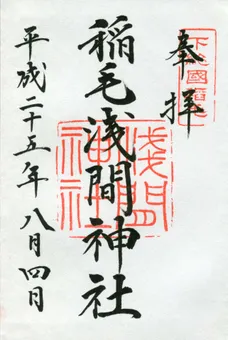 奉拝
下総國稲毛
稲毛浅間神社
浅間神社
平成二十五年八月四日